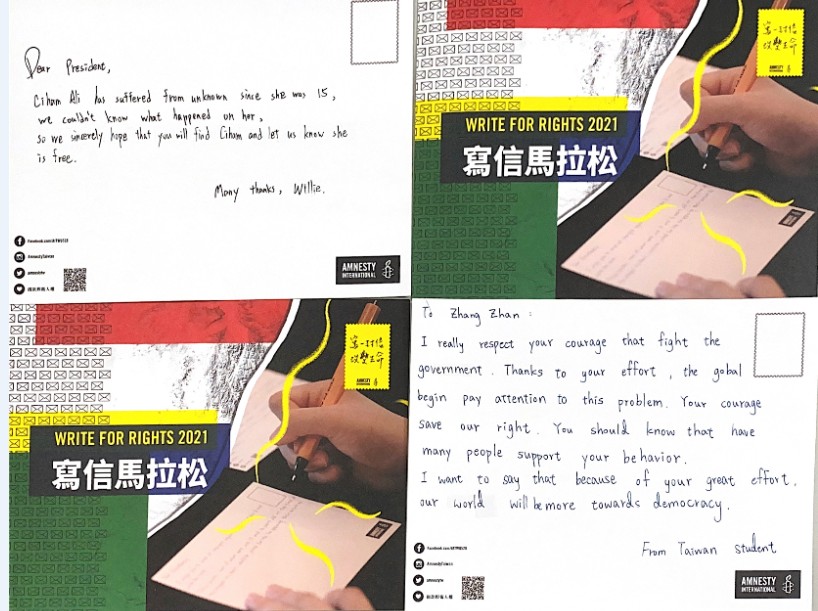 Dear President,
Ciham Ali has suffered from unknown since she was 15,
we couldn't know what happened on her,
so we sincerely hope that you will find Ciham and let us know she
is free.
Many thanks, Willie.
AmnestyTaiwan
amnestytw
國際特赦人權
AMNESTY
INTERNATIONAL
寫一封信
改變生命
AMNESTY
WRITE FOR RIGHTS 2021
寫信馬拉松
寫一封信
改變生命
AMNESTY
WRITE FOR RIGHTS 2021
寫信馬拉松
To Zhang Zhan :
I really respect your courage that fight the
government. Thanks to your effort, the gobal
begin pay attention to this problem. Your courage
save our right. You should know that have
many people support your behavior.
I want to say that because of your great effort,
our world will be more towards democracy.
From Taiwan student
AmnestyTaiwan
amnestytw
AMNESTY
INTERNATIONAL